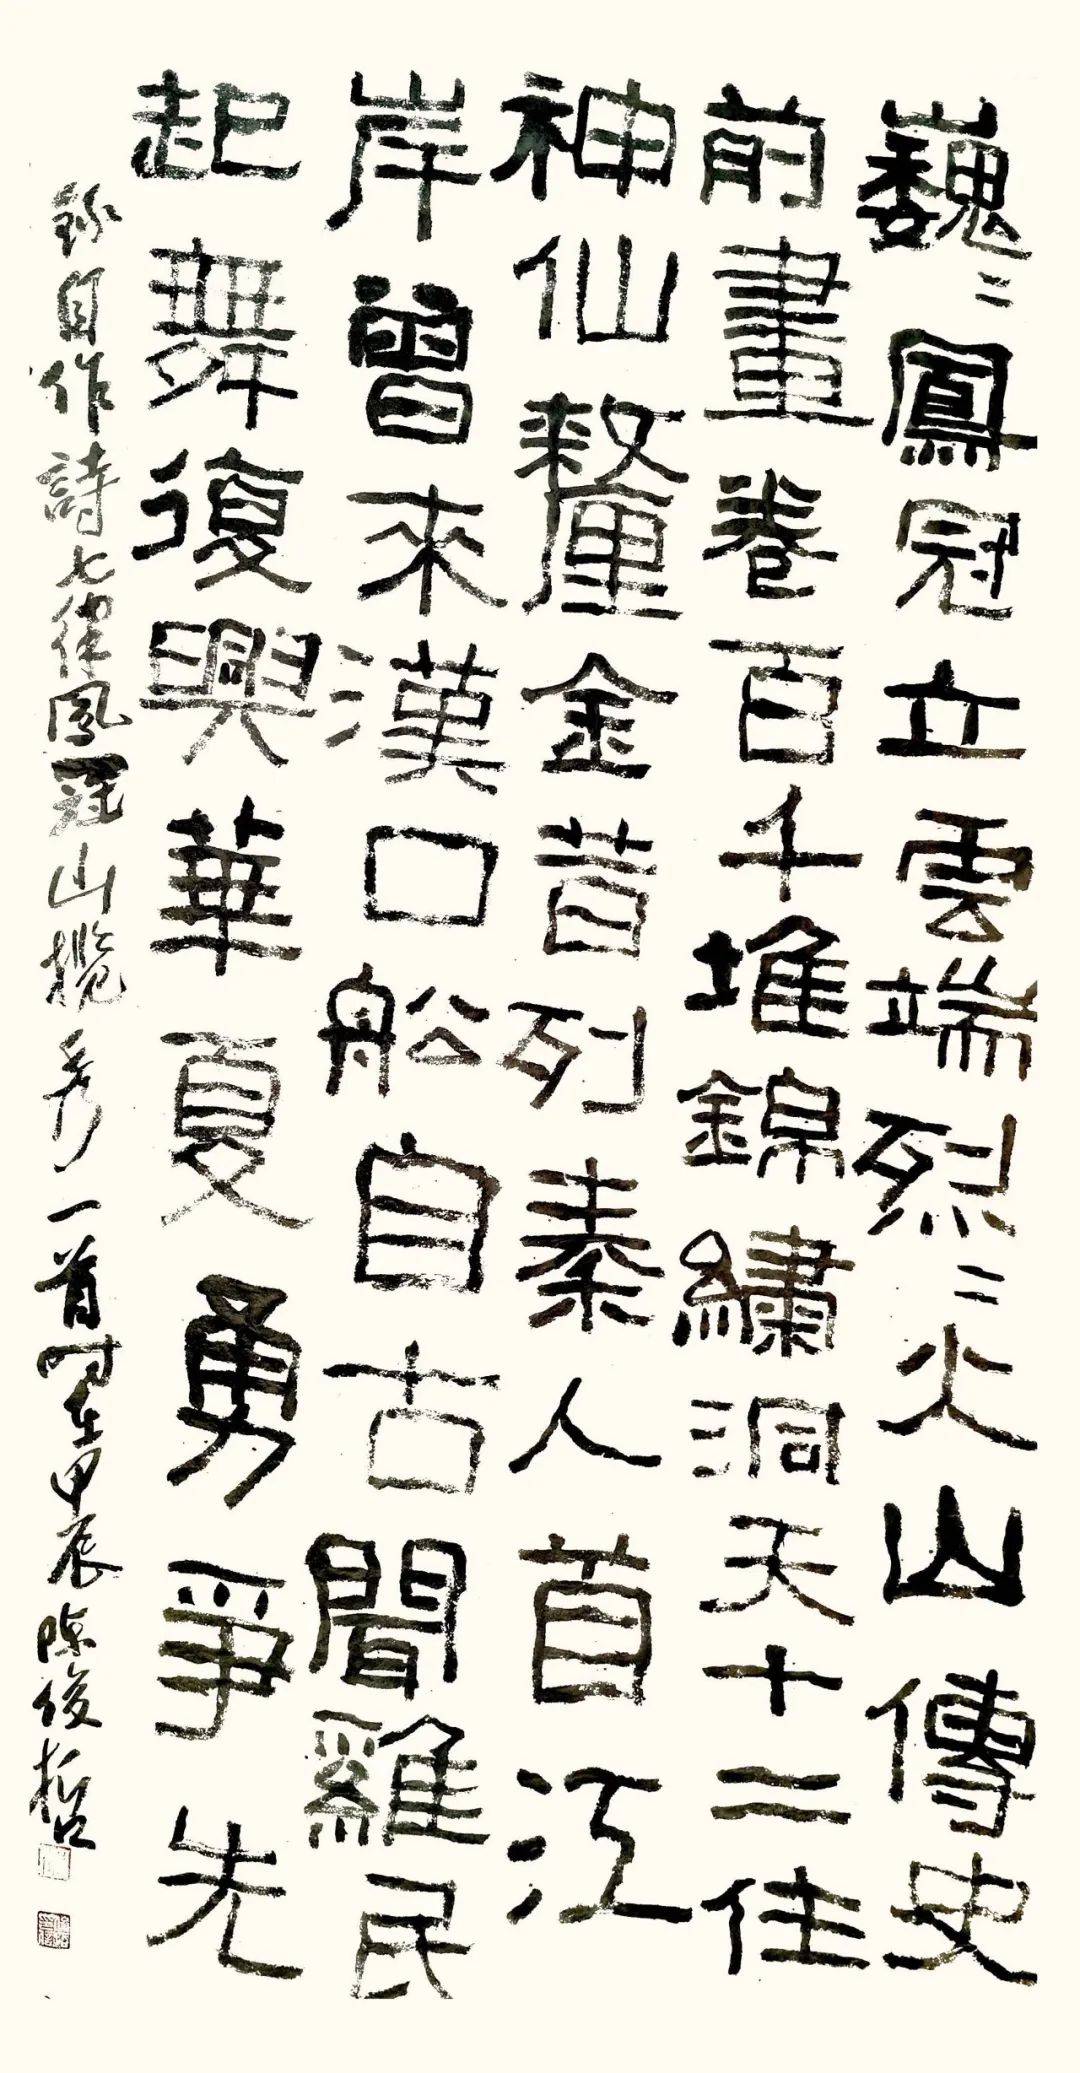 巍〻鳳冠立雲端烈〻火山傳史
前畫卷百千堆錦繡洞天十二住
神仙釐金昔列秦人首江
岸曾來漢口船自古聞雞民
起舞復興華夏勇爭先
錄自作詩七律鳳冠山攬秀一首時在甲辰陳俊哲